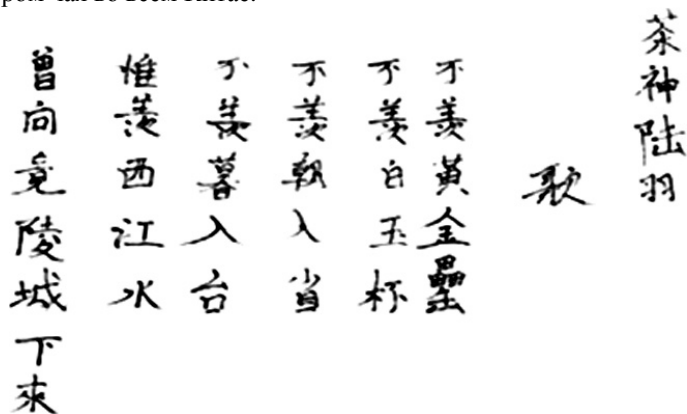 茶神陸羽
歌
不羨黄金罍
不羨白玉杯
不羨朝入省
不羨暮入台
惟羨西江水
曾向竟陵城下來